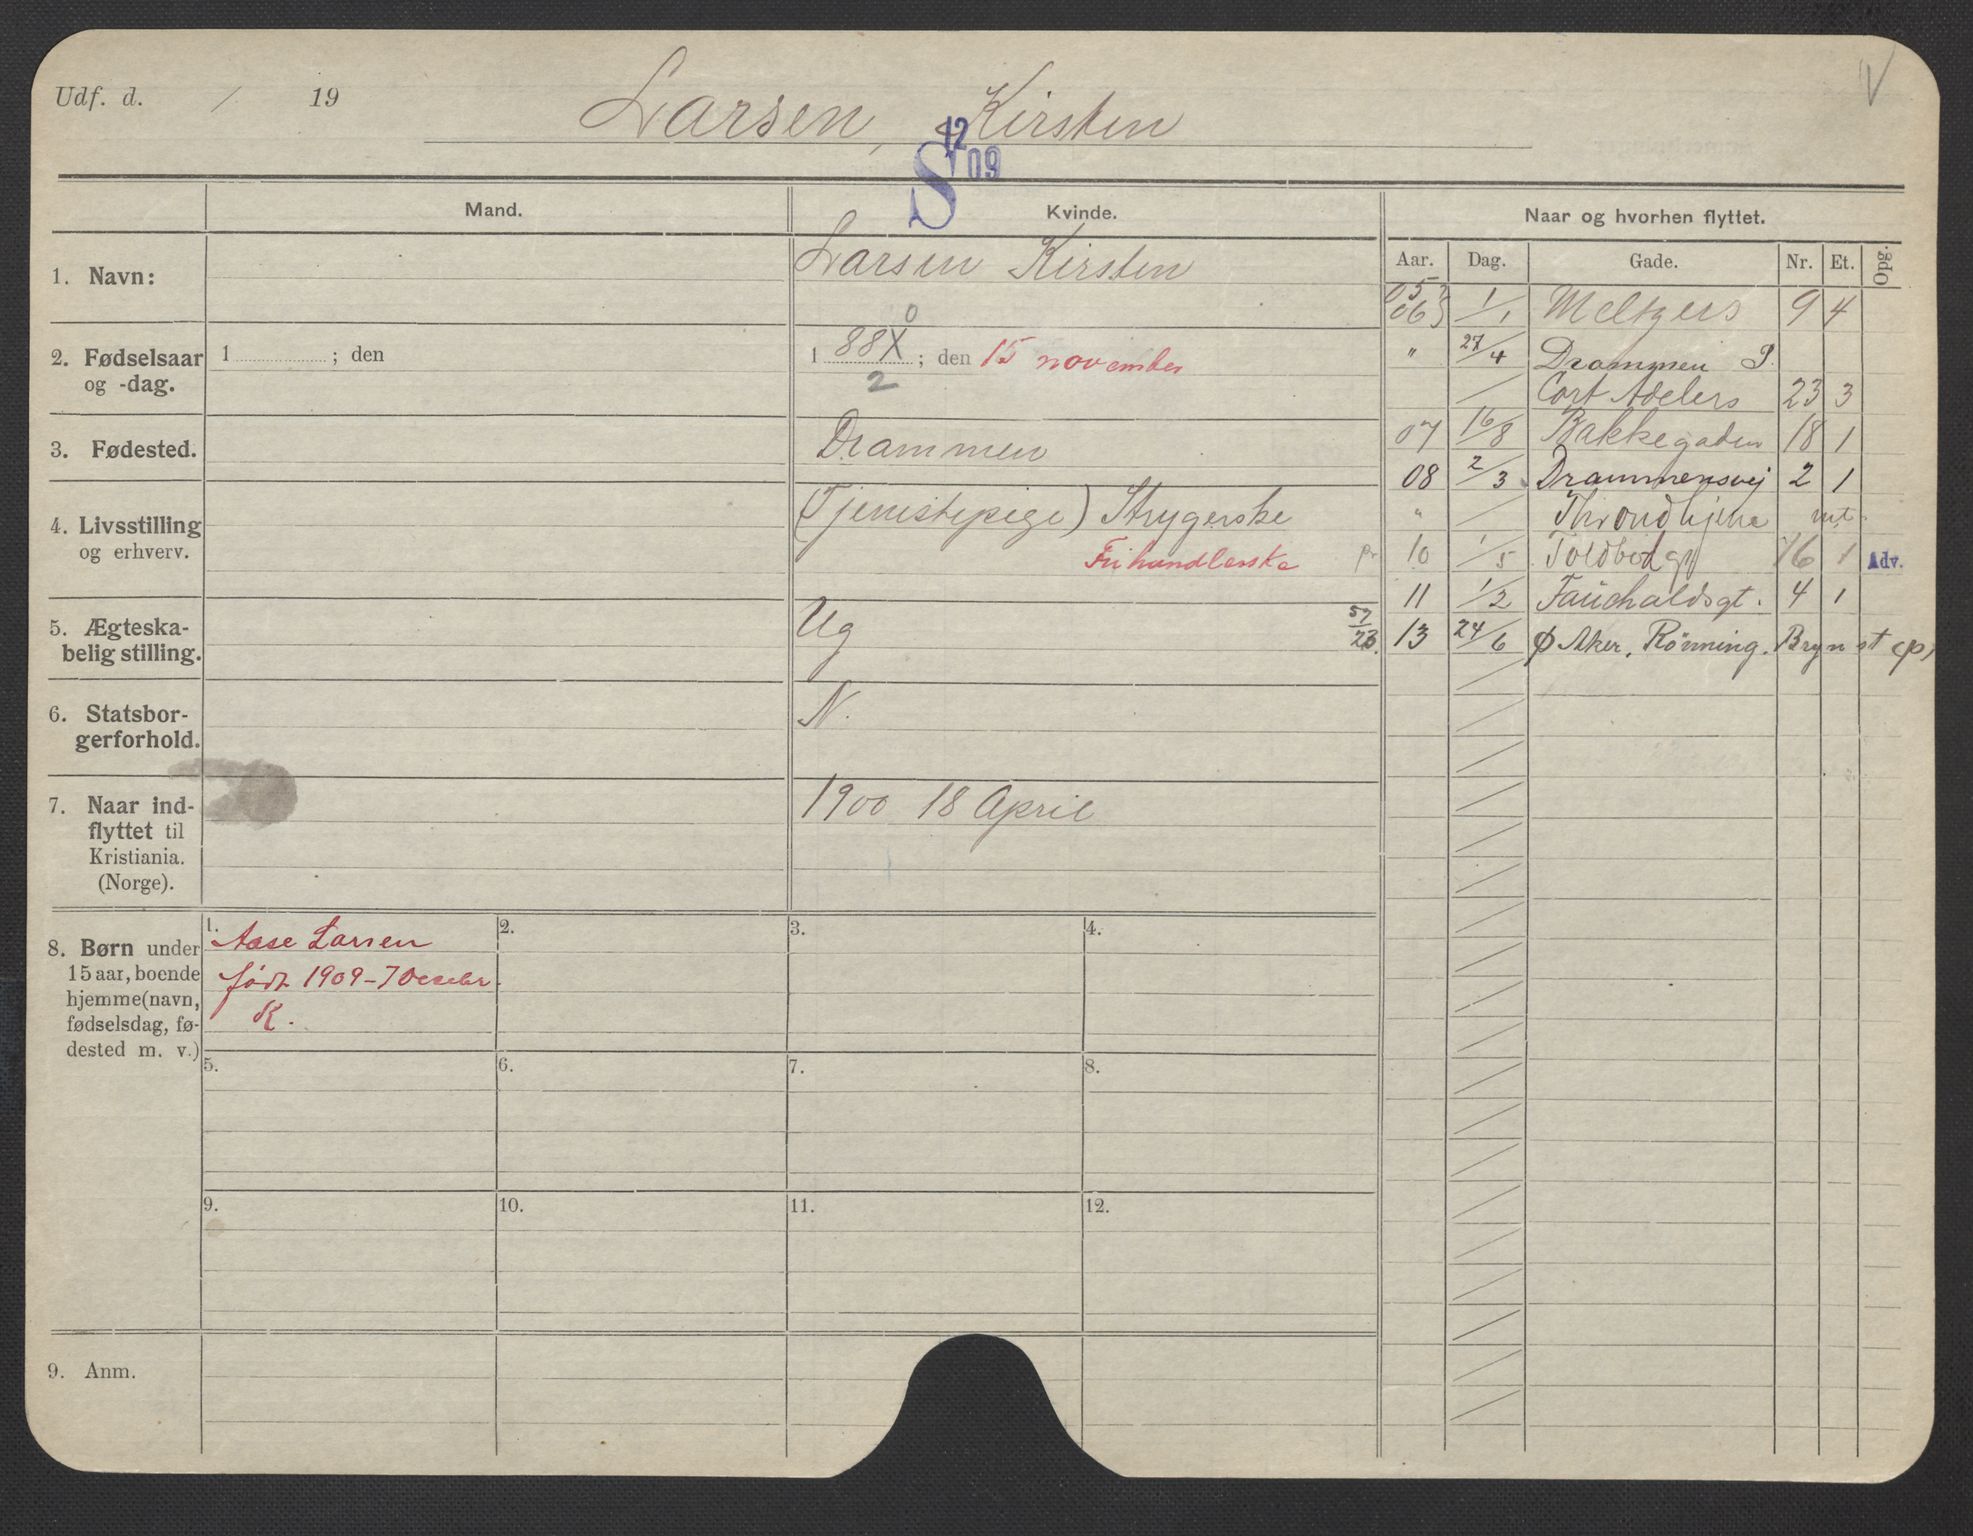 Udf. d. / 19
Larsen, Kirsten
V
S 12 09
Mand.
Kvinde.
Naar og hvorhen flyttet.
Aar. Dag. Gade. Nr. Et. Opg.
1. Navn:
Larsen Kirsten
2. Fødselsaar
og -dag.
1 ; den
0
1 88X ; den 15 november
2
3. Fødested.
Drammen
4. Livsstilling
og erhverv.
(Tjenestepige) Strygerske
Frihandlerske
5. Ægteska-
belig stilling.
Ug
6. Statsbor-
gerforhold.
N.
7. Naar ind-
flyttet til
Kristiania.
(Norge).
1900 18 April
05
06 1/1 Meltzers 9 4
" 27/4 Drammen P.
/ Cort Adelers 23 3
07 16/8 Bakkegaden 18 1
08 2/3 Drammensvej 2 1
" / Throndhjem
pr 10 1/5 Toldbodg 16 1 Adv.
11 1/2 Fauchaldsgt. 4 1
57/23. 13 24/6 Ø Aker. Rønning. Bryn st (p)
8. Børn under
15 aar, boende
hjemme (navn,
fødselsdag, fø-
dested m. v.)
1. Aase Larsen
født 1909-7 Decebr.
K.
2.
3.
4.
5.
6.
7.
8.
9.
10.
11.
12.
9. Anm.